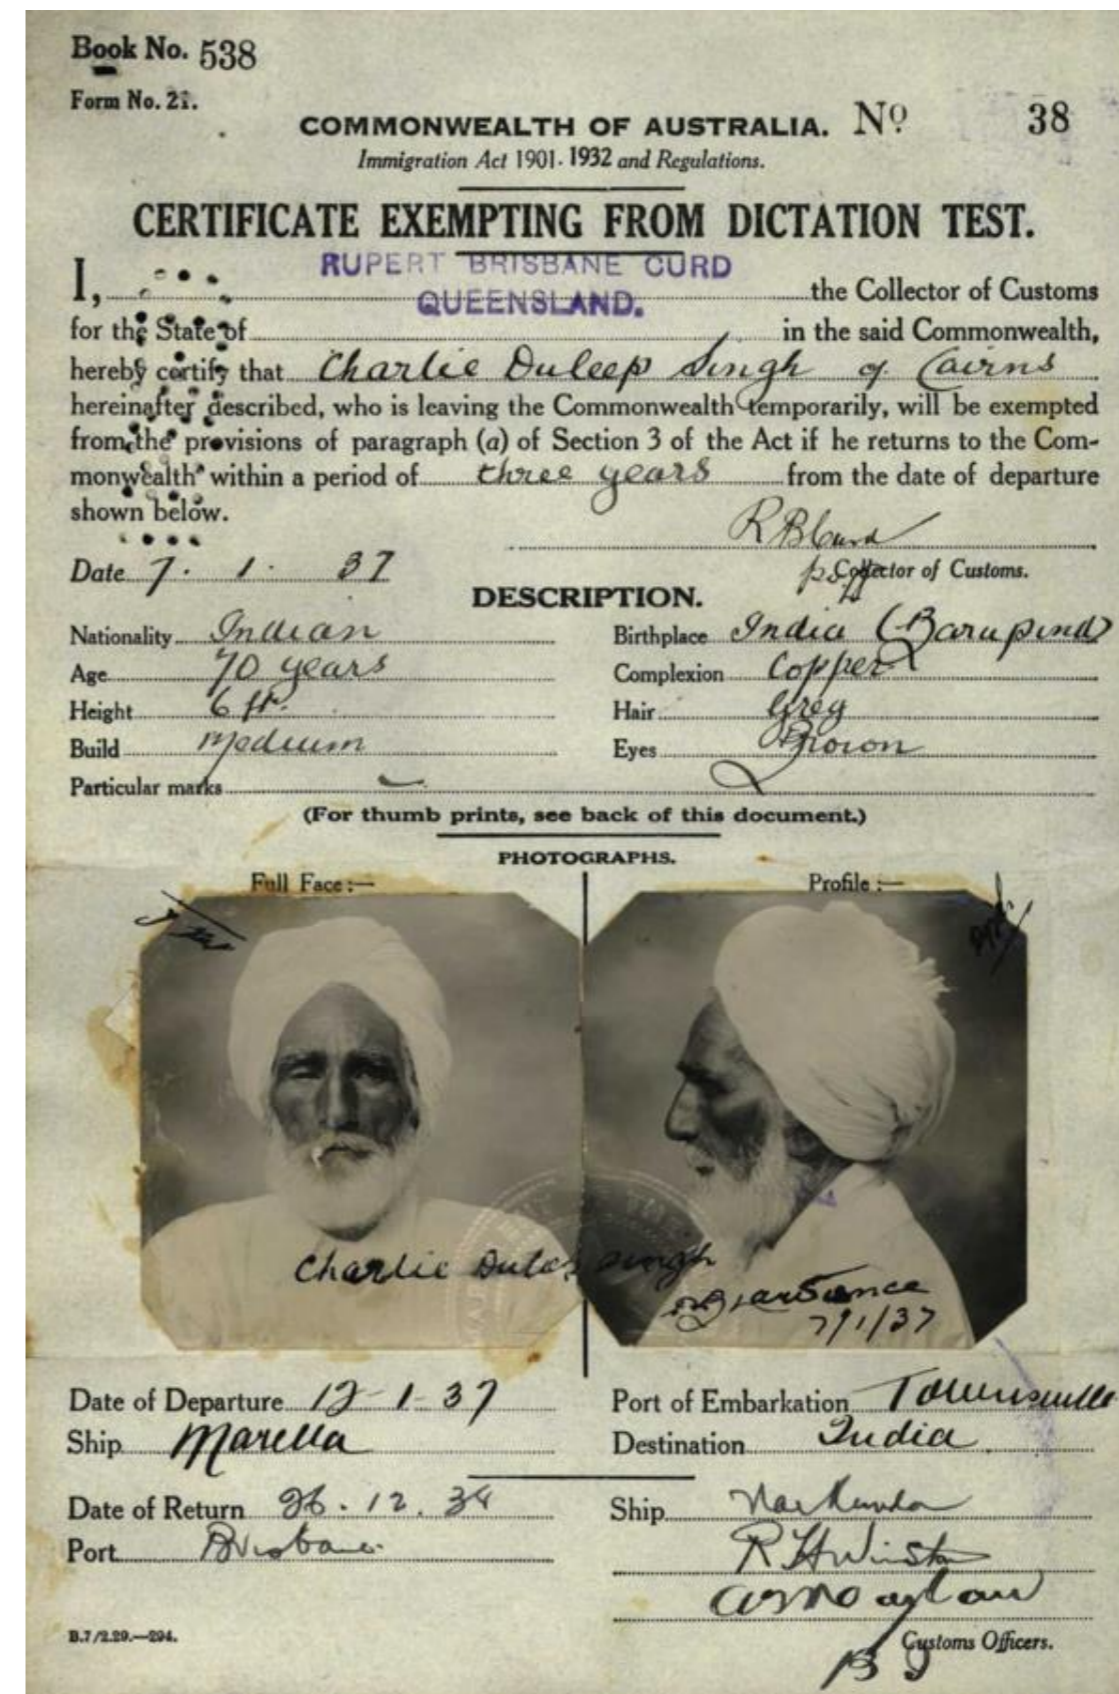 Book No. 538
Form No. 21.
COMMONWEALTH OF AUSTRALIA. No 38
Immigration Act 1901-1932 and Regulations.
CERTIFICATE EXEMPTING FROM DICTATION TEST.
RUPERT BRISBANE CURD
I, the Collector of Customs
QUEENSLAND.
for the State of in the said Commonwealth,
hereby certify that Charlie Duleep Singh of Cairns
hereinafter described, who is leaving the Commonwealth temporarily, will be exempted
from the provisions of paragraph (a) of Section 3 of the Act if he returns to the Com-
monwealth within a period of three years from the date of departure
shown below.
R B Curd
Date 7. 1. 37 Collector of Customs.
DESCRIPTION.
Nationality Indian Birthplace India (Barapind)
Age 70 years Complexion Copper
Height 6 ft. Hair Grey
Build Medium Eyes Brown
Particular marks
(For thumb prints, see back of this document.)
PHOTOGRAPHS.
Full Face:— Profile:—
Charlie Duleep Singh
7/1/37
Date of Departure 12-1-37 Port of Embarkation Townsville
Ship Marella Destination India
Date of Return 26.12.38 Ship
Port Brisbane
Customs Officers.
B.7/2.29.—294.